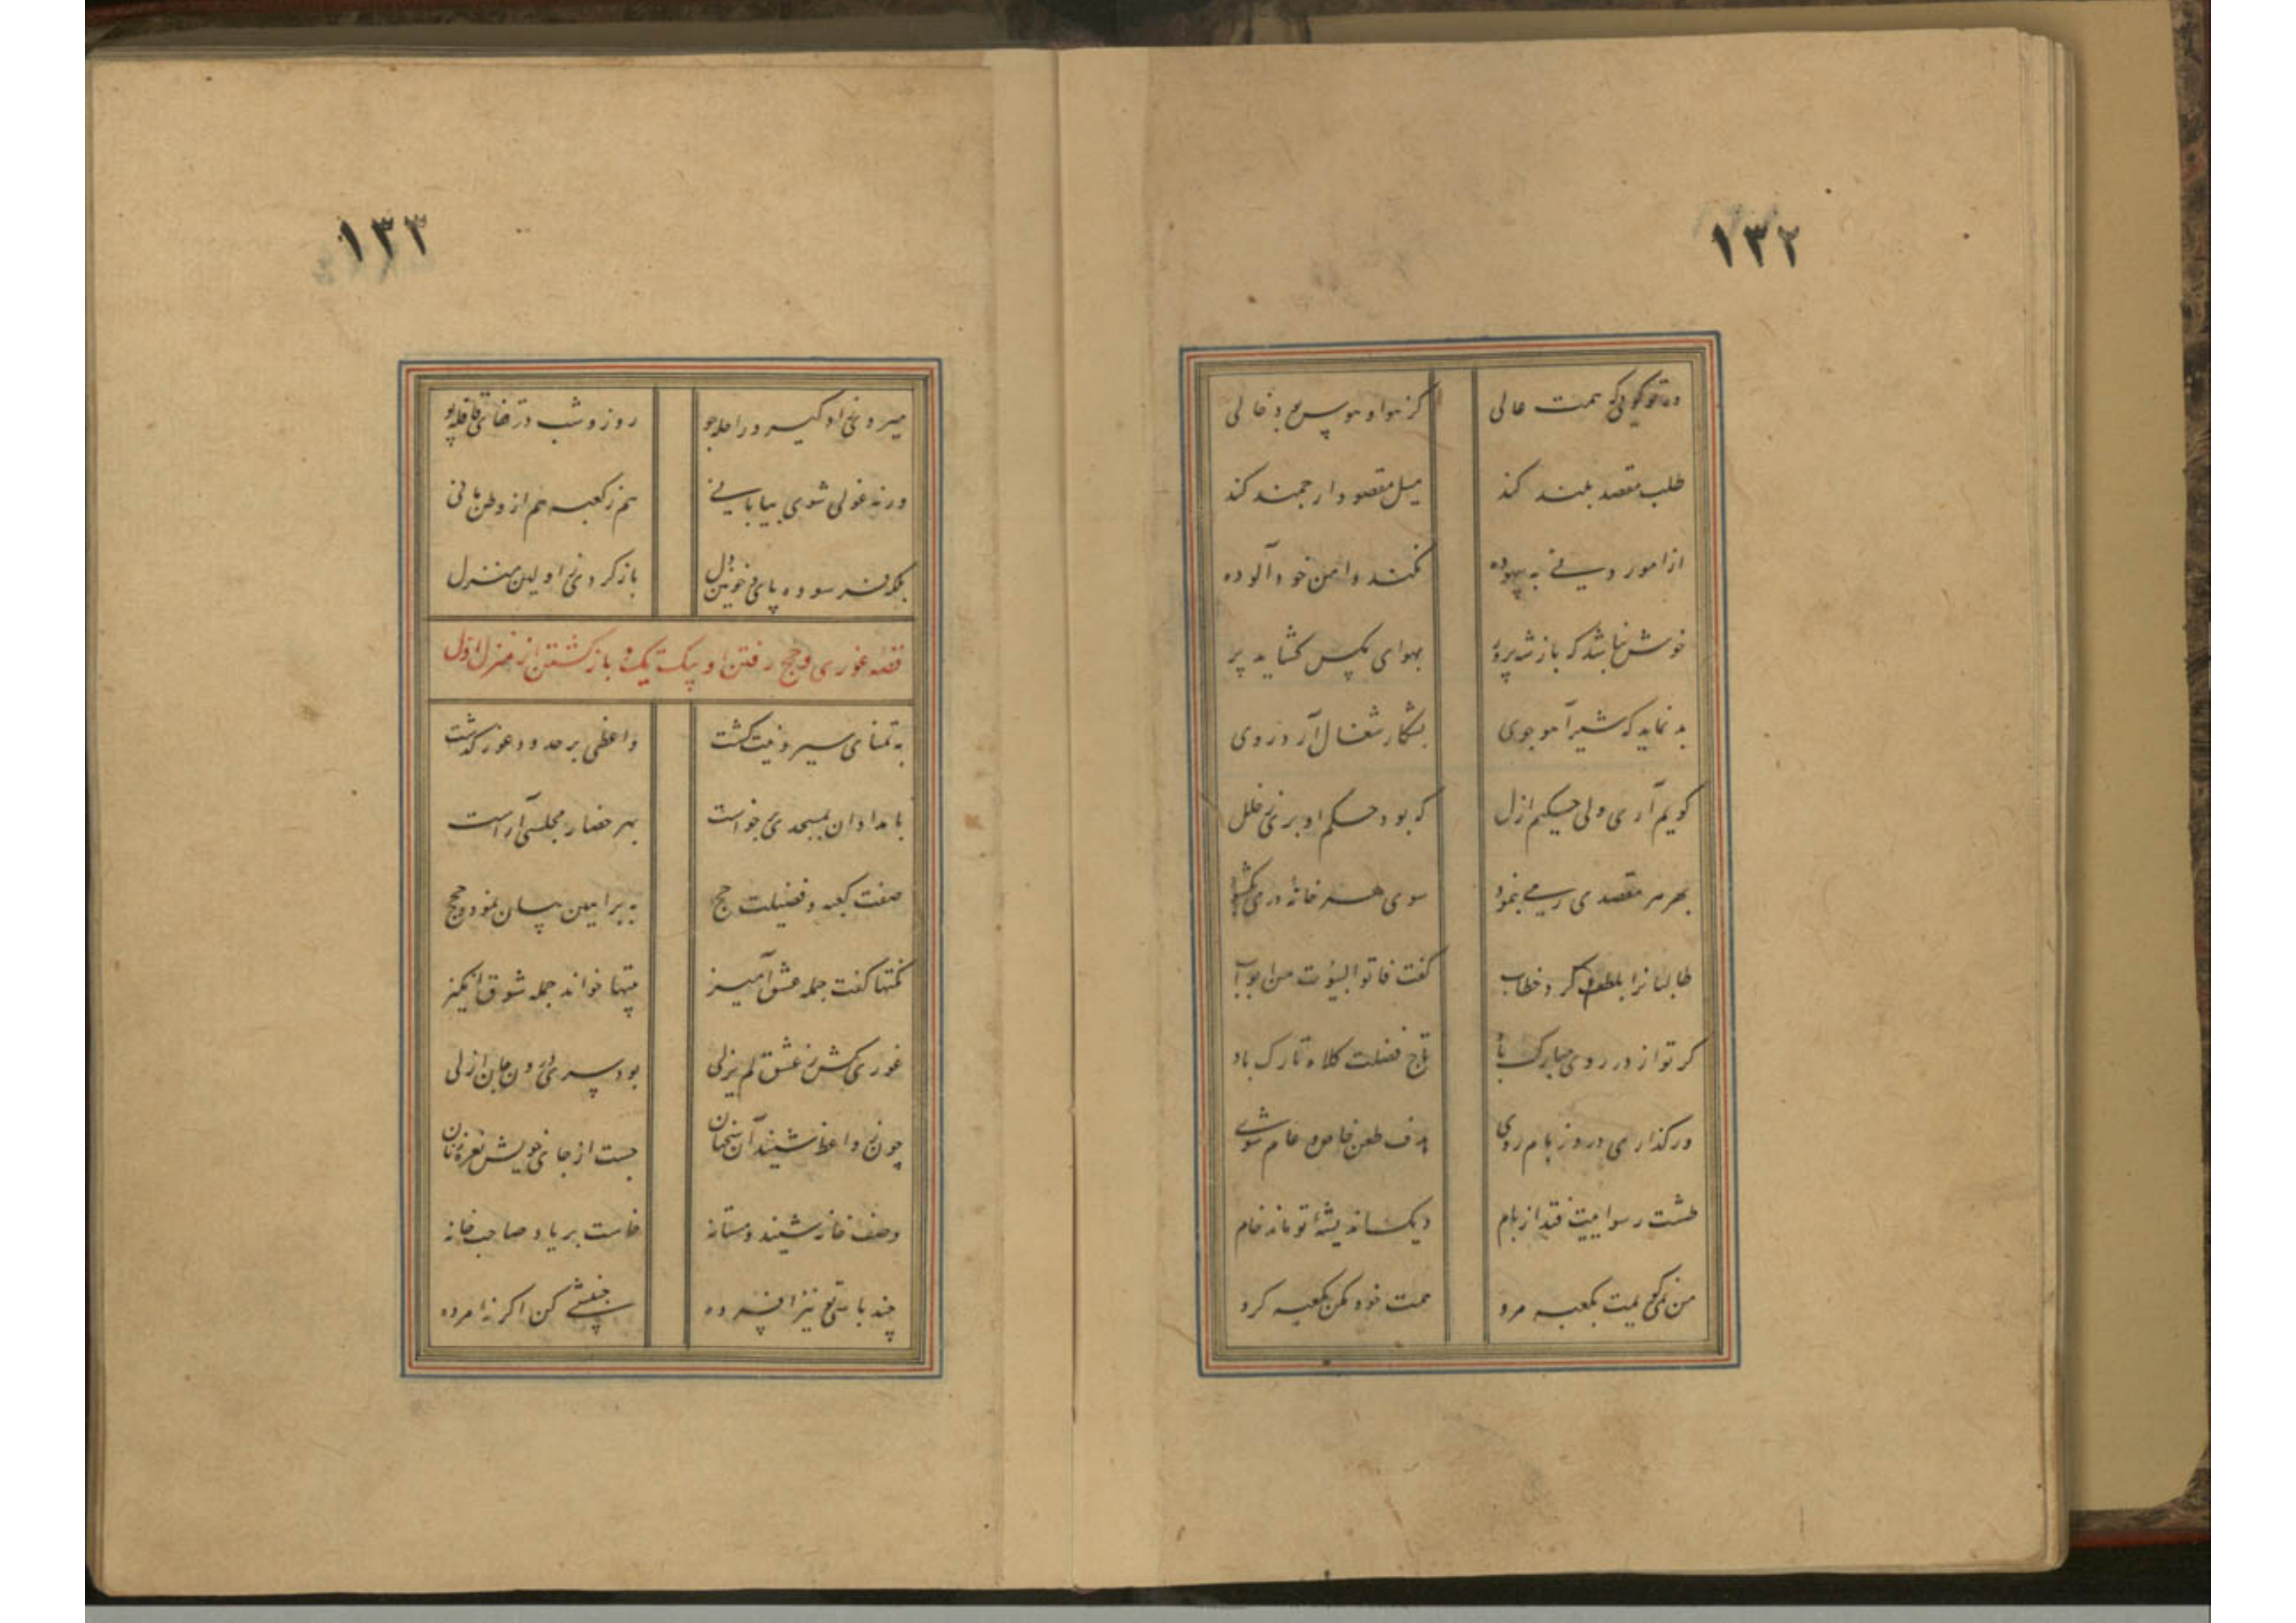 ۱۳۲
ور تو گویی که همت عالی کز هوا و هوس بود خالی
طلب مقصد بلند کند میل مقصود ارجمند کند
از امور دنی به بیهوده نکند دامن خود آلوده
خوش نباشد که باز شه پرور بهوای مگس گشاید پر
بد نماید که شیر آهو جوی بشکار شغال آرد روی
گویم آری ولی حکیم ازل که بود حکم او بری ز خلل
بهر هر مقصدی رهی بنمود سوی هر خانه دری بگشود
طالبانرا بلطف کرد خطاب گفت فاتوا البیوت من ابواب
گر تو از در روی مبارک باد تاج فضلت کلاه تارک باد
ور گذاری در و ز بام روی هدف طعن خاص و عام شوی
طشت رسواییت فتد از بام دیگ اندیشه تو ماند خام
من نمی‌گویمت بکعبه مرو همت خود مکن بکعبه گرو
۱۳۳
میرو نی زاد گیر و راحله جو روز و شب در قفای قافله پو
ورنه غولی شوی بیابانی هم ز کعبه هم از وطن مانی
بلکه فرسوده پای و خونین دل باز گردی ز اولین منزل
قصه غوری و بحج رفتن او بیک تک و بازگشتن از منزل اول
واعظی بر حدود غور گذشت به تمنای سیر و نیت گشت
بامدادان بمسجدی برخاست بهر حضار مجلسی آراست
صفت کعبه و فضیلت حج به براهین بیان نمود و حجج
نکتها گفت جمله عشق آمیز بیتها خواند جمله شوق انگیز
غوریی کش ز عشق لم یزلی بود سری درون جان ازلی
چون ز واعظ شنید آن سخنان جست از جای خویش نعره زنان
وصف خانه شنید و مستانه خاست بر یاد صاحب خانه
چند باشی تو نیز افسرده جنبشی کن اگر نه‌ای مرده